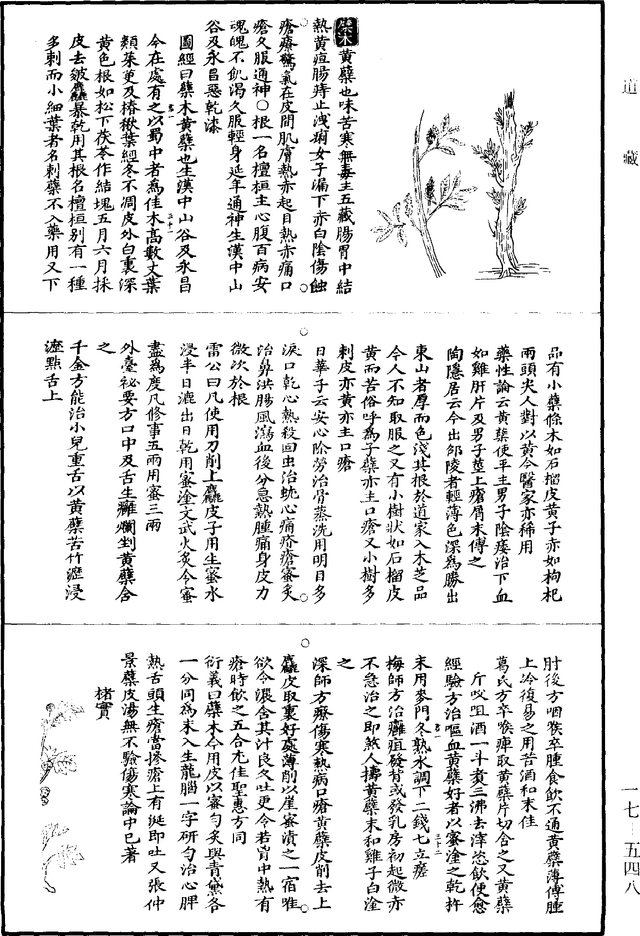 道藏
蘗木黃蘗也味苦寒無毒主五藏腸胃中結
熱黃疸腸痔止洩痢女子漏下赤白陰傷蝕
瘡療驚氣在皮間肌膚熱赤起目熱赤痛口
瘡久服通神○根一名檀桓主心腹百病安
魂魄不飢渴久服輕身延年通神生漢中山
谷及永昌惡乾漆
圖經曰蘗木黃蘗也生漢中山谷及永昌
今在處有之以蜀中者為佳木高數丈葉
類茱萸及椿楸葉經冬不凋皮外白裏深
黃色根如松下茯苓作結塊五月六月採
皮去皴麤暴乾用其根名檀桓別有一種
多刺而小細葉者名刺蘗不入藥用又下
品有小蘗條木如石榴皮黃子赤如枸杞
兩頭尖人剉以黃今醫家亦稀用
藥性論云黃蘗使平主男子陰痿治下血
如雞肝片及男子莖上瘡屑末傅之
陶隱居云今出邵陵者輕薄色深為勝出
東山者厚而色淺其根於道家入木芝品
今人不知取服之又有小樹狀如石榴皮
黃而苦俗呼為子蘗亦主口瘡又小樹多
刺皮亦黃亦主口瘡
日華子云安心除勞治骨蒸洗肝明目多
淚口乾心熱殺疳虫治蚘心痛疥瘡蜜炙
治鼻洪腸風瀉血後分急熱腫痛身皮力
微次於根
雷公曰凡使用刀削上麤皮子用生蜜水
浸半日漉出日乾用蜜塗文武火炙令蜜
盡為度凡修事五兩用蜜三兩
外臺祕要方口中及舌生瘡爛剉黃蘗含
之
千金方能治小兒重舌以黃蘗苦竹瀝浸
瀝點舌上
肘後方咽喉卒腫食飲不通黃蘗薄傅腫
上冷復易之用苦酒和末佳
葛氏方卒喉痺取黃蘗片切含之又黃蘗
一斤㕮咀酒一斗煮三沸去滓恣飲便愈
經驗方治嘔血黃蘗好者以蜜塗之乾杵
末用麥門冬熟水調下二錢七立瘥
梅師方治癰疽發背或發乳房初起微赤
不急治之即煞人擣黃蘗末和雞子白塗
之
深師方療傷寒熱病口瘡黃蘗皮削去上
麤皮取裏好處薄削以崖蜜漬之一宿唯
欲令濃含其汁良久吐更含若胷中熱有
瘡時飲之五合尤佳聖惠方同
衍義曰蘗木今用皮以蜜勻炙與青黛各
一分同為末入生龍腦一字研勻治心脾
熱舌頭生瘡當摻瘡上有涎即吐又張仲
景蘗皮湯無不驗傷寒論中已著
楮實
一七—五四八